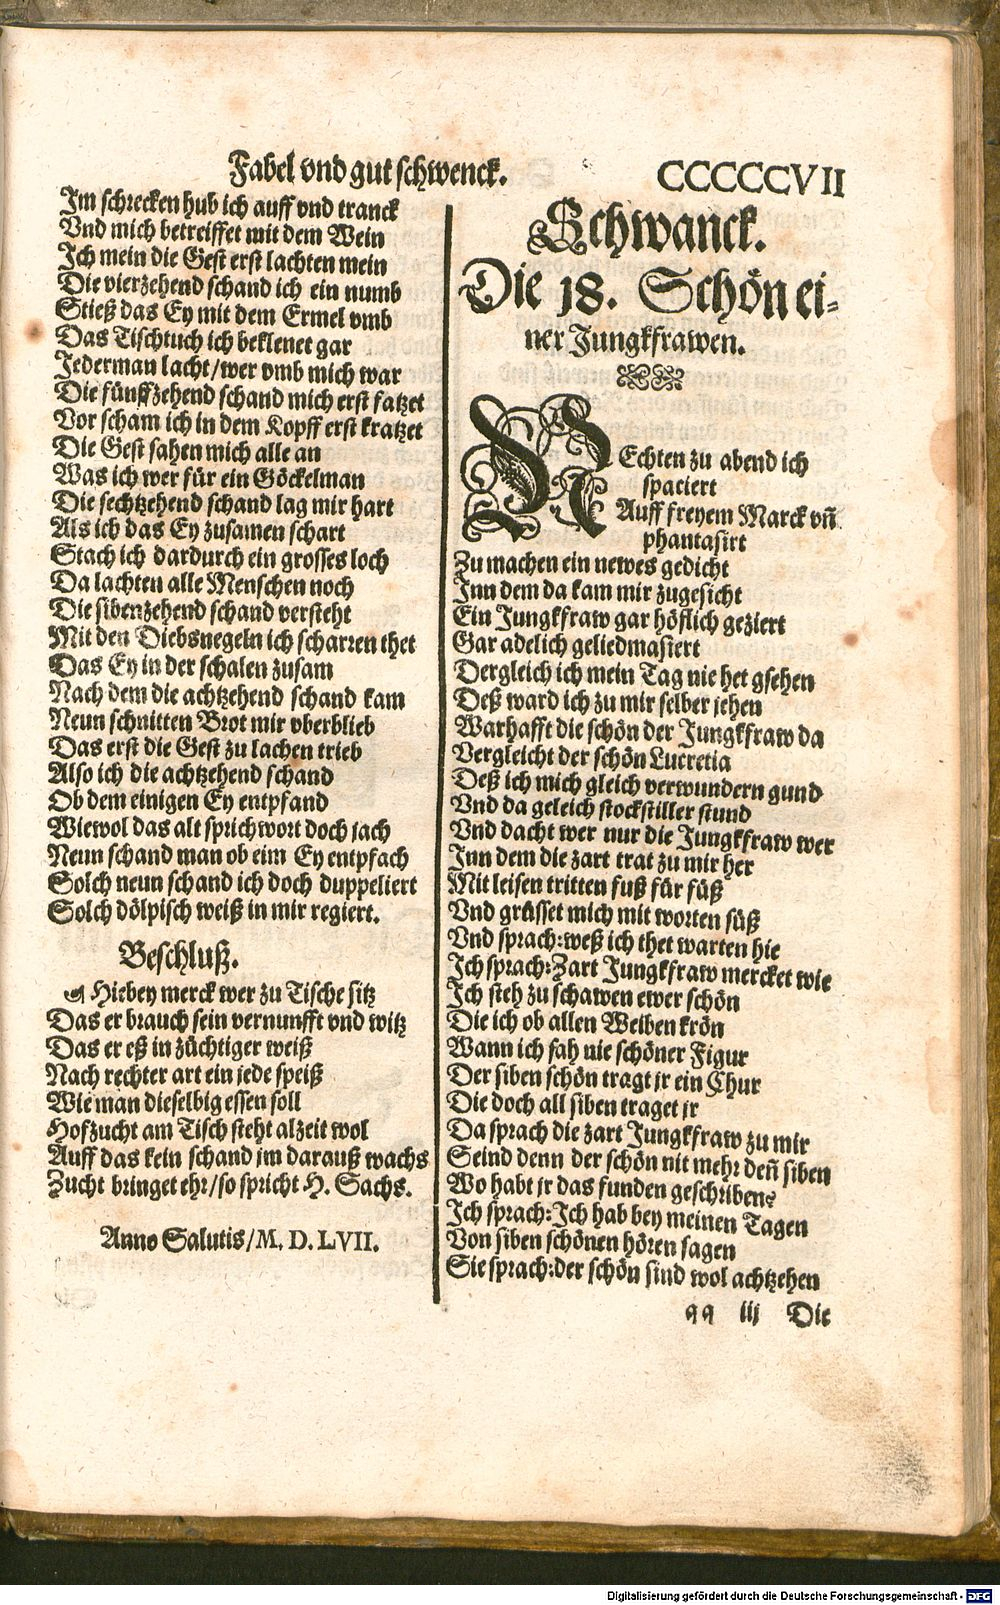 Fabel vnd gut schwenck.
CCCCCVII
Im schrecken hub ich auff vnd tranck
Vnd mich betreiffet mit dem Wein
Ich mein die Gest erst lachten mein
Die vierzehend schand ich ein numb
Stieß das Ey mit dem Ermel vmb
Das Tischtuch ich beklenet gar
Jederman lacht/wer vmb mich war
Die fünffzehend schand mich erst fatzet
Vor scham ich in dem Kopff erst kratzet
Die Gest sahen mich alle an
Was ich wer für ein Göckelman
Die sechtzehend schand lag mir hart
Als ich das Ey zusamen schart
Stach ich dardurch ein grosses loch
Da lachten alle Menschen noch
Die sibenzehend schand versteht
Mit den Diebsnegeln ich scharren thet
Das Ey in der schalen zusam
Nach dem die achtzehend schand kam
Neun schnitten Brot mir vberblieb
Das erst die Gest zu lachen trieb
Also ich die achtzehend schand
Ob dem einigen Ey entpfand
Wiewol das alt sprichwort doch jach
Neun schand man ob eim Ey entpfach
Solch neun schand ich doch duppeliert
Solch dölpisch weiß in mir regiert.
Beschluß.
Hiebey merck wer zu Tische sitz
Das er brauch sein vernunfft vnd witz
Das er eß in züchtiger weiß
Nach rechter art ein jede speiß
Wie man dieselbig essen soll
Hofzucht am Tisch steht alzeit wol
Auff das kein schand jm darauß wachs
Zucht bringet ehr/so spricht H. Sachs.
Anno Salutis/M. D. LVII.
Schwanck.
Die 18. Schön ei-
ner Jungkfrawen.
NEchten zu abend ich
spaciert
Auff freyem Marck vñ
phantasirt
Zu machen ein newes gedicht
Inn dem da kam mir zugesicht
Ein Jungkfraw gar höflich geziert
Gar adelich geliedmasiert
Dergleich ich mein Tag nie het gsehen
Deß ward ich zu mir selber jehen
Warhafft die schön der Jungkfraw da
Vergleicht der schön Lucretia
Deß ich mich gleich verwundern gund
Vnd da geleich stockstiller stund
Vnd dacht wer nur die Jungkfraw wer
Inn dem die zart trat zu mir her
Mit leisen tritten fuß für fuß
Vnd grüsset mich mit worten süß
Vnd sprach: weß ich thet warten hie
Ich sprach: Zart Jungkfraw mercket wie
Ich steh zu schawen ewer schön
Die ich ob allen Weiben krön
Wann ich sah nie schöner Figur
Der siben schön tragt jr ein Chur
Die doch all siben traget jr
Da sprach die zart Jungkfraw zu mir
Seind denn der schön nit mehr deñ siben
Wo habt jr das funden geschriben?
Ich sprach: Ich hab bey meinen Tagen
Von siben schönen hören sagen
Sie sprach: der schön sind wol achtzehen
qq iij Die
Digitalisierung gefördert durch die Deutsche Forschungsgemeinschaft - DFG